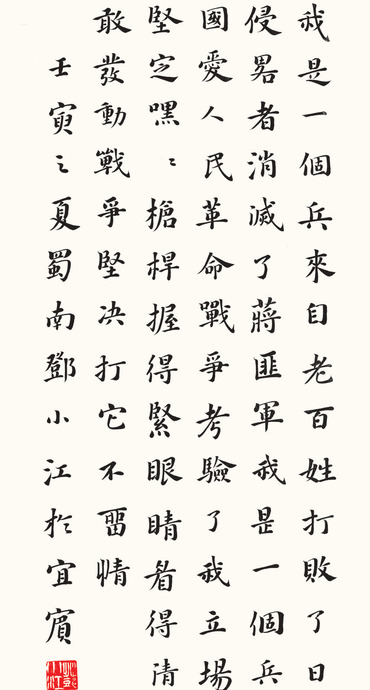 我是一個兵來自老百姓打敗了日
侵畧者消滅了蔣匪軍我是一個兵
國愛人民革命戰爭考驗了我立場
堅定嘿〻槍桿握得緊眼睛看得清
敢發動戰爭堅决打它不畱情
壬寅之夏蜀南鄧小江於宜賓